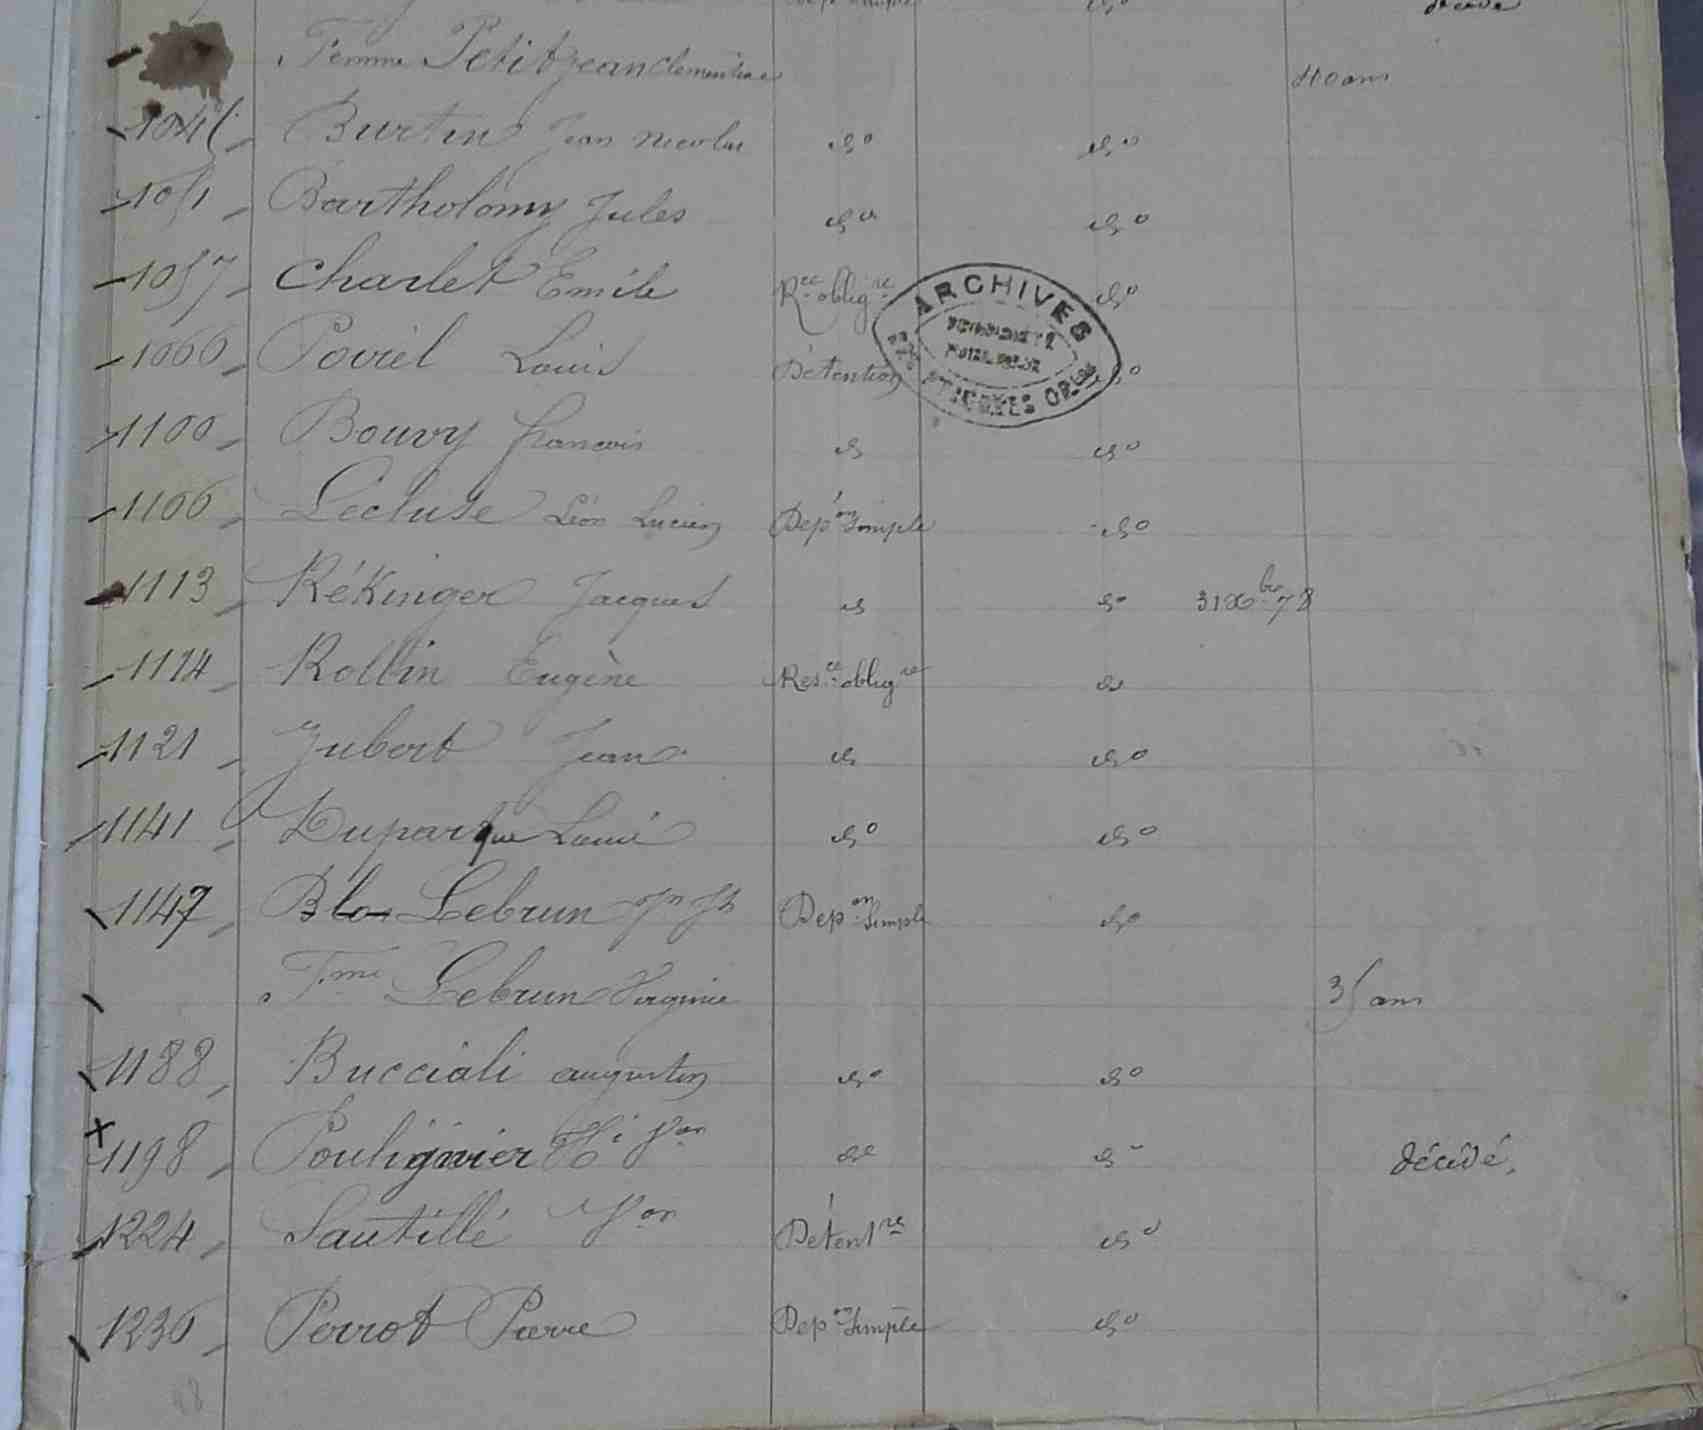 Dep simple do décédé
Femme Petitjean Clementine 40 ans
Burtin Jean Nicolas do do
1051 Bartholomy Jules do do
1057 Charlet Emile Rce obligre do
1060 Poviel Louis Détention do
ARCHIVES
1100 Bouvy francois d do
1106 Lécluse Léon Lucien Depon Simple do
1113 Rékinger Jacques d do 31 Xbre 78
1114 Rollin Eugène Resce obligre do
1121 Jubert Jean d do
1141 Duparque Louis do do
1147 Blon Lebrun Jn Jh Depon Simple do
Fme Lebrun Virginie 35 ans
1188 Bucciali augustin do do
1198 Poulignier Hi Von do do décédé.
1224 Sautillé Von Détentre do
1236 Perrot Pierre Depon Simple do